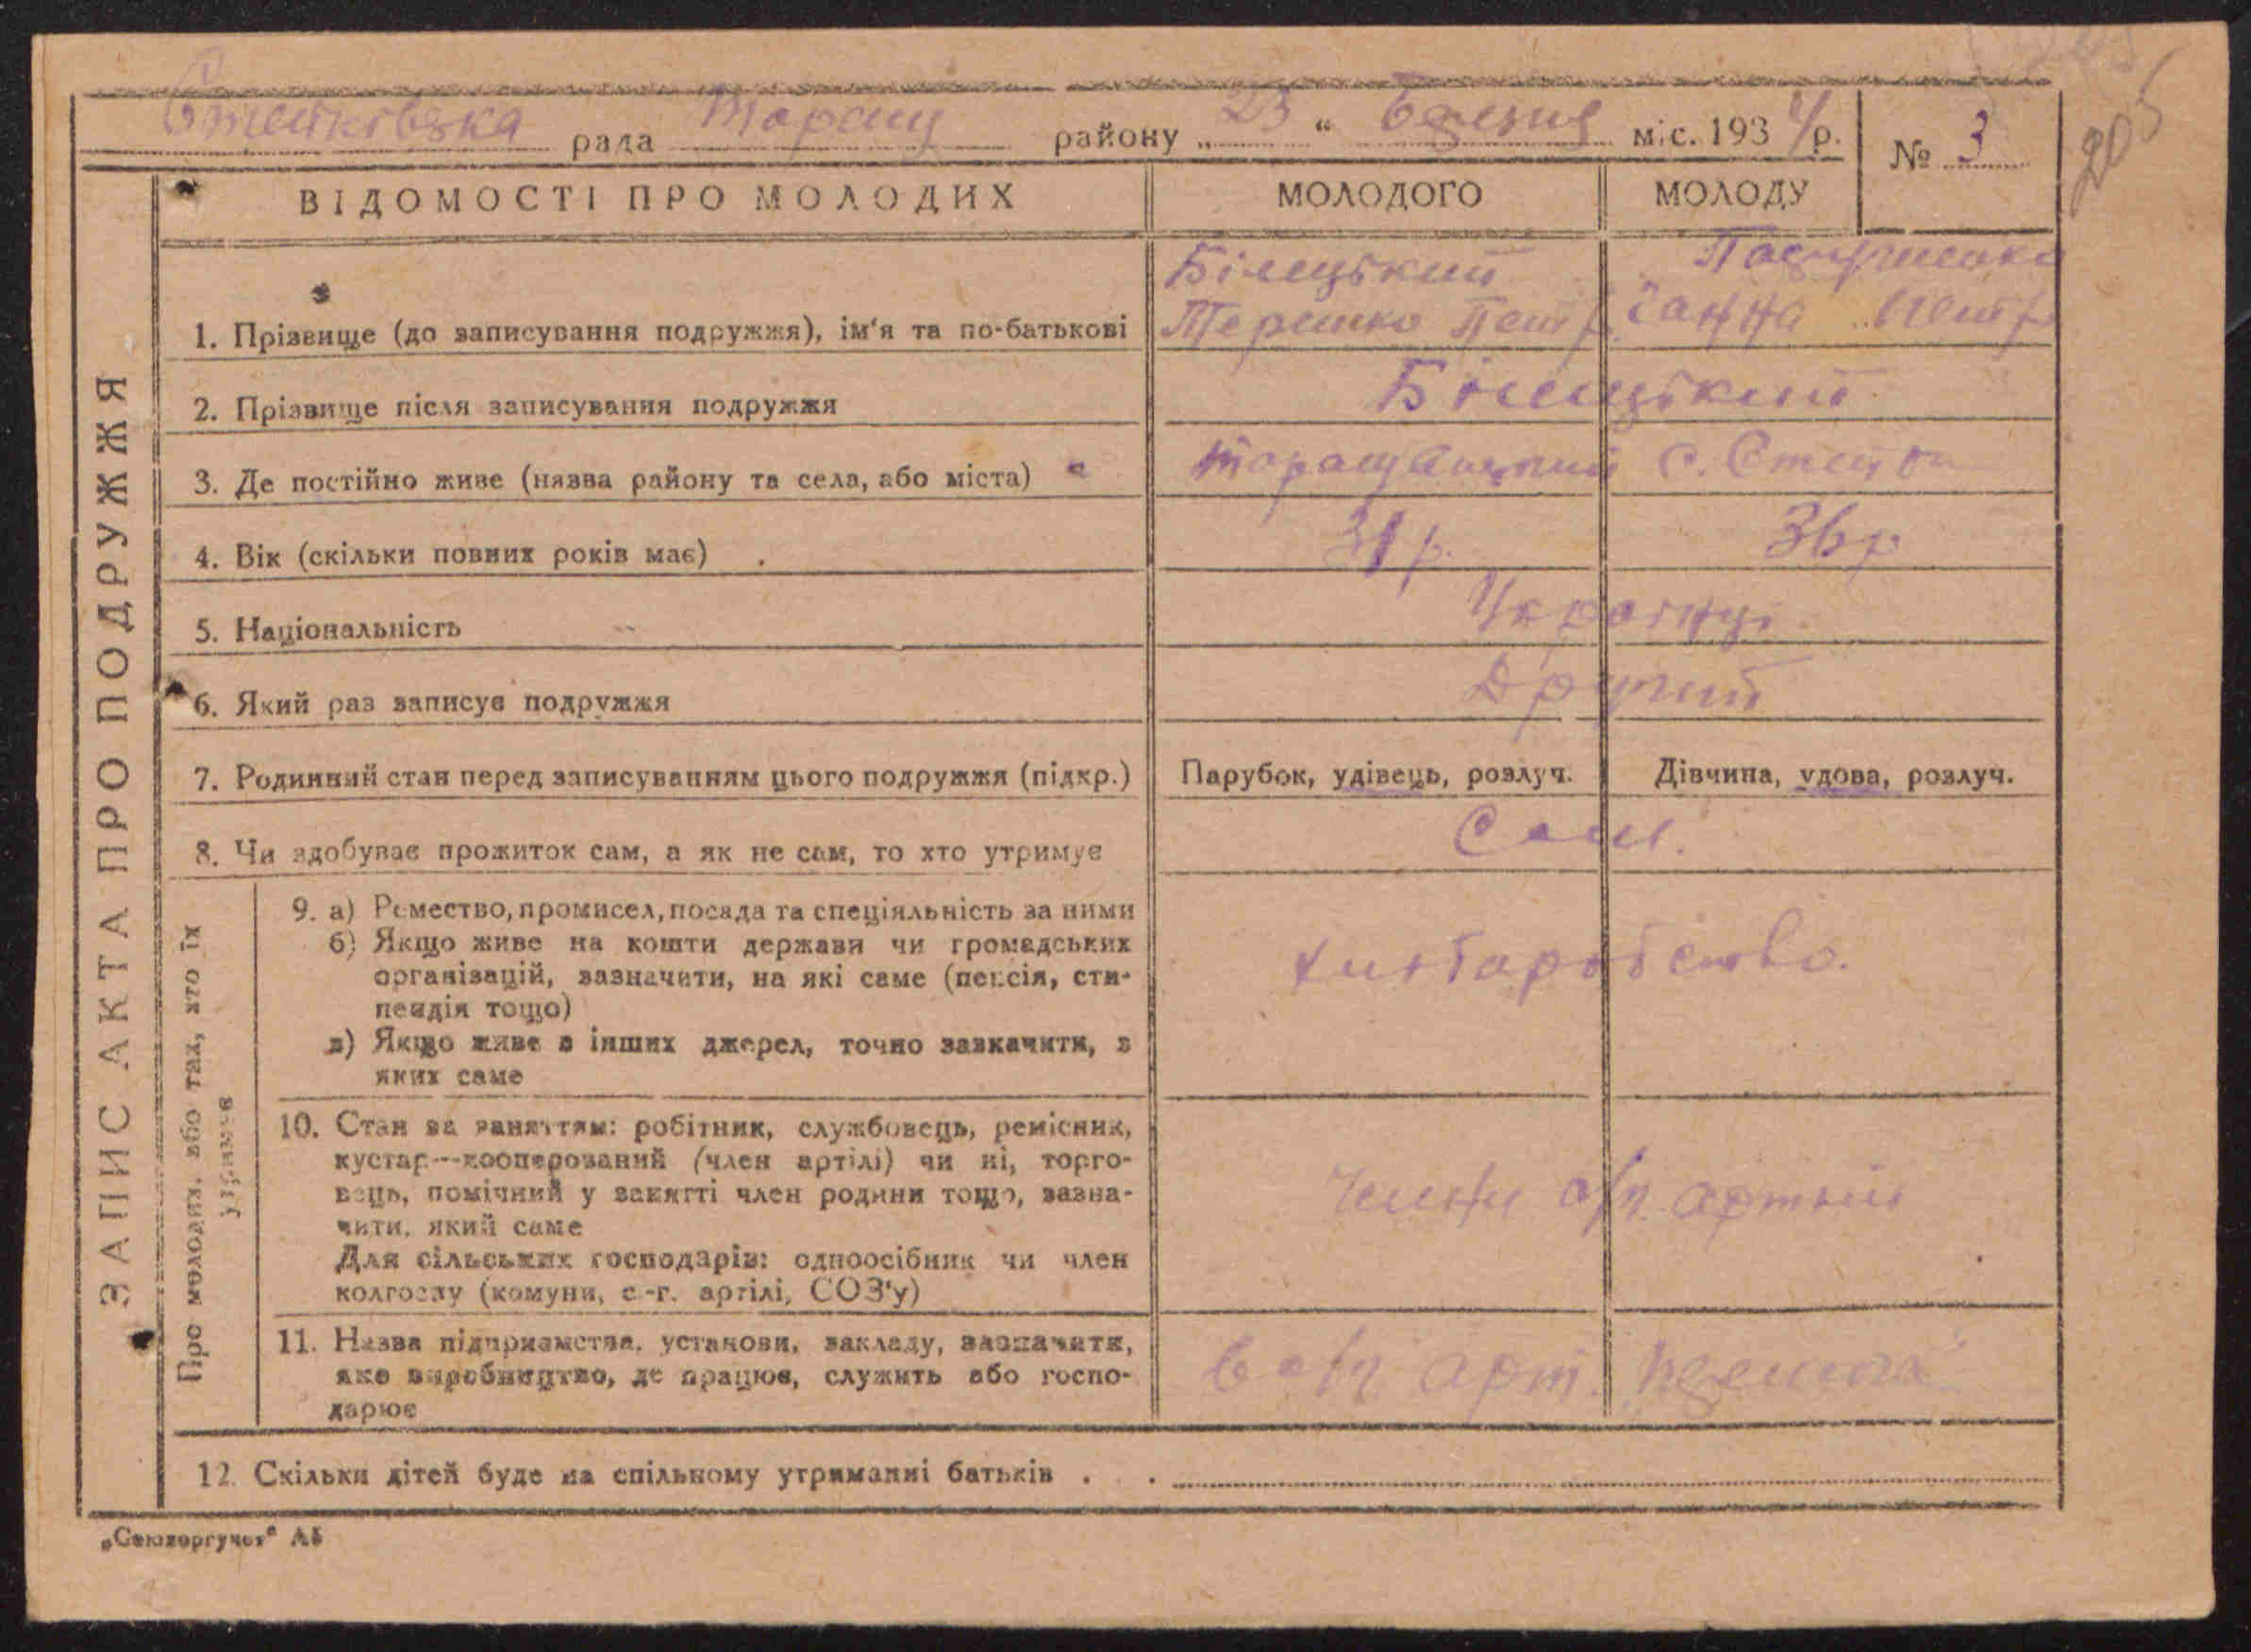 205
Стейковвка рада Таращ району „23“ Березня міс. 1934 р. № 3
ЗАПИС АКТА ПРО ПОДРУЖЖЯ
ВІДОМОСТІ ПРО МОЛОДИХ МОЛОДОГО МОЛОДУ
Білецький
1. Прізвище (до записування подружжя), ім'я та по-батькові Терешко Петр. Ганна Петр
2. Прізвище після записування подружжя Білецький
3. Де постійно живе (назва району та села, або міста) Таращанський с.
4. Вік (скільки повних років має) 31 р. 36 р
5. Національність Українці
6. Який раз записує подружжя Другий
7. Родинний стан перед записуванням цього подружжя (підкр.) Парубок, удівець, розлуч. Дівчина, удова, розлуч.
8. Чи здобуває прожиток сам, а як не сам, то хто утримує Сам.
Про молодих, або тих, хто їх утримує
9. а) Ремество, промисел, посада та спеціяльність за ними
б) Якщо живе на кошти держави чи громадських
організацій, зазначити, на які саме (пенсія, сти-
пендія тощо)
хліборобство.
в) Якщо живе з інших джерел, точно зазначити, з
яких саме
10. Стан за заняттям: робітник, службовець, ремісник,
кустар—кооперований (член артілі) чи ні, торго-
вець, помічний у занятті член родини тощо, зазна-
чити, який саме
члени с/г. артілі
Для сільських господарів: одноосібник чи член
колгоспу (комуни, с.-г. артілі, СОЗ'у)
11. Назва підприємства, установи, закладу, зазначити,
яке виробництво, де працює, служить або госпо-
дарює
в с/г арт.
12. Скільки дітей буде на спільному утриманні батьків . .
„Союзоргучет“ А5